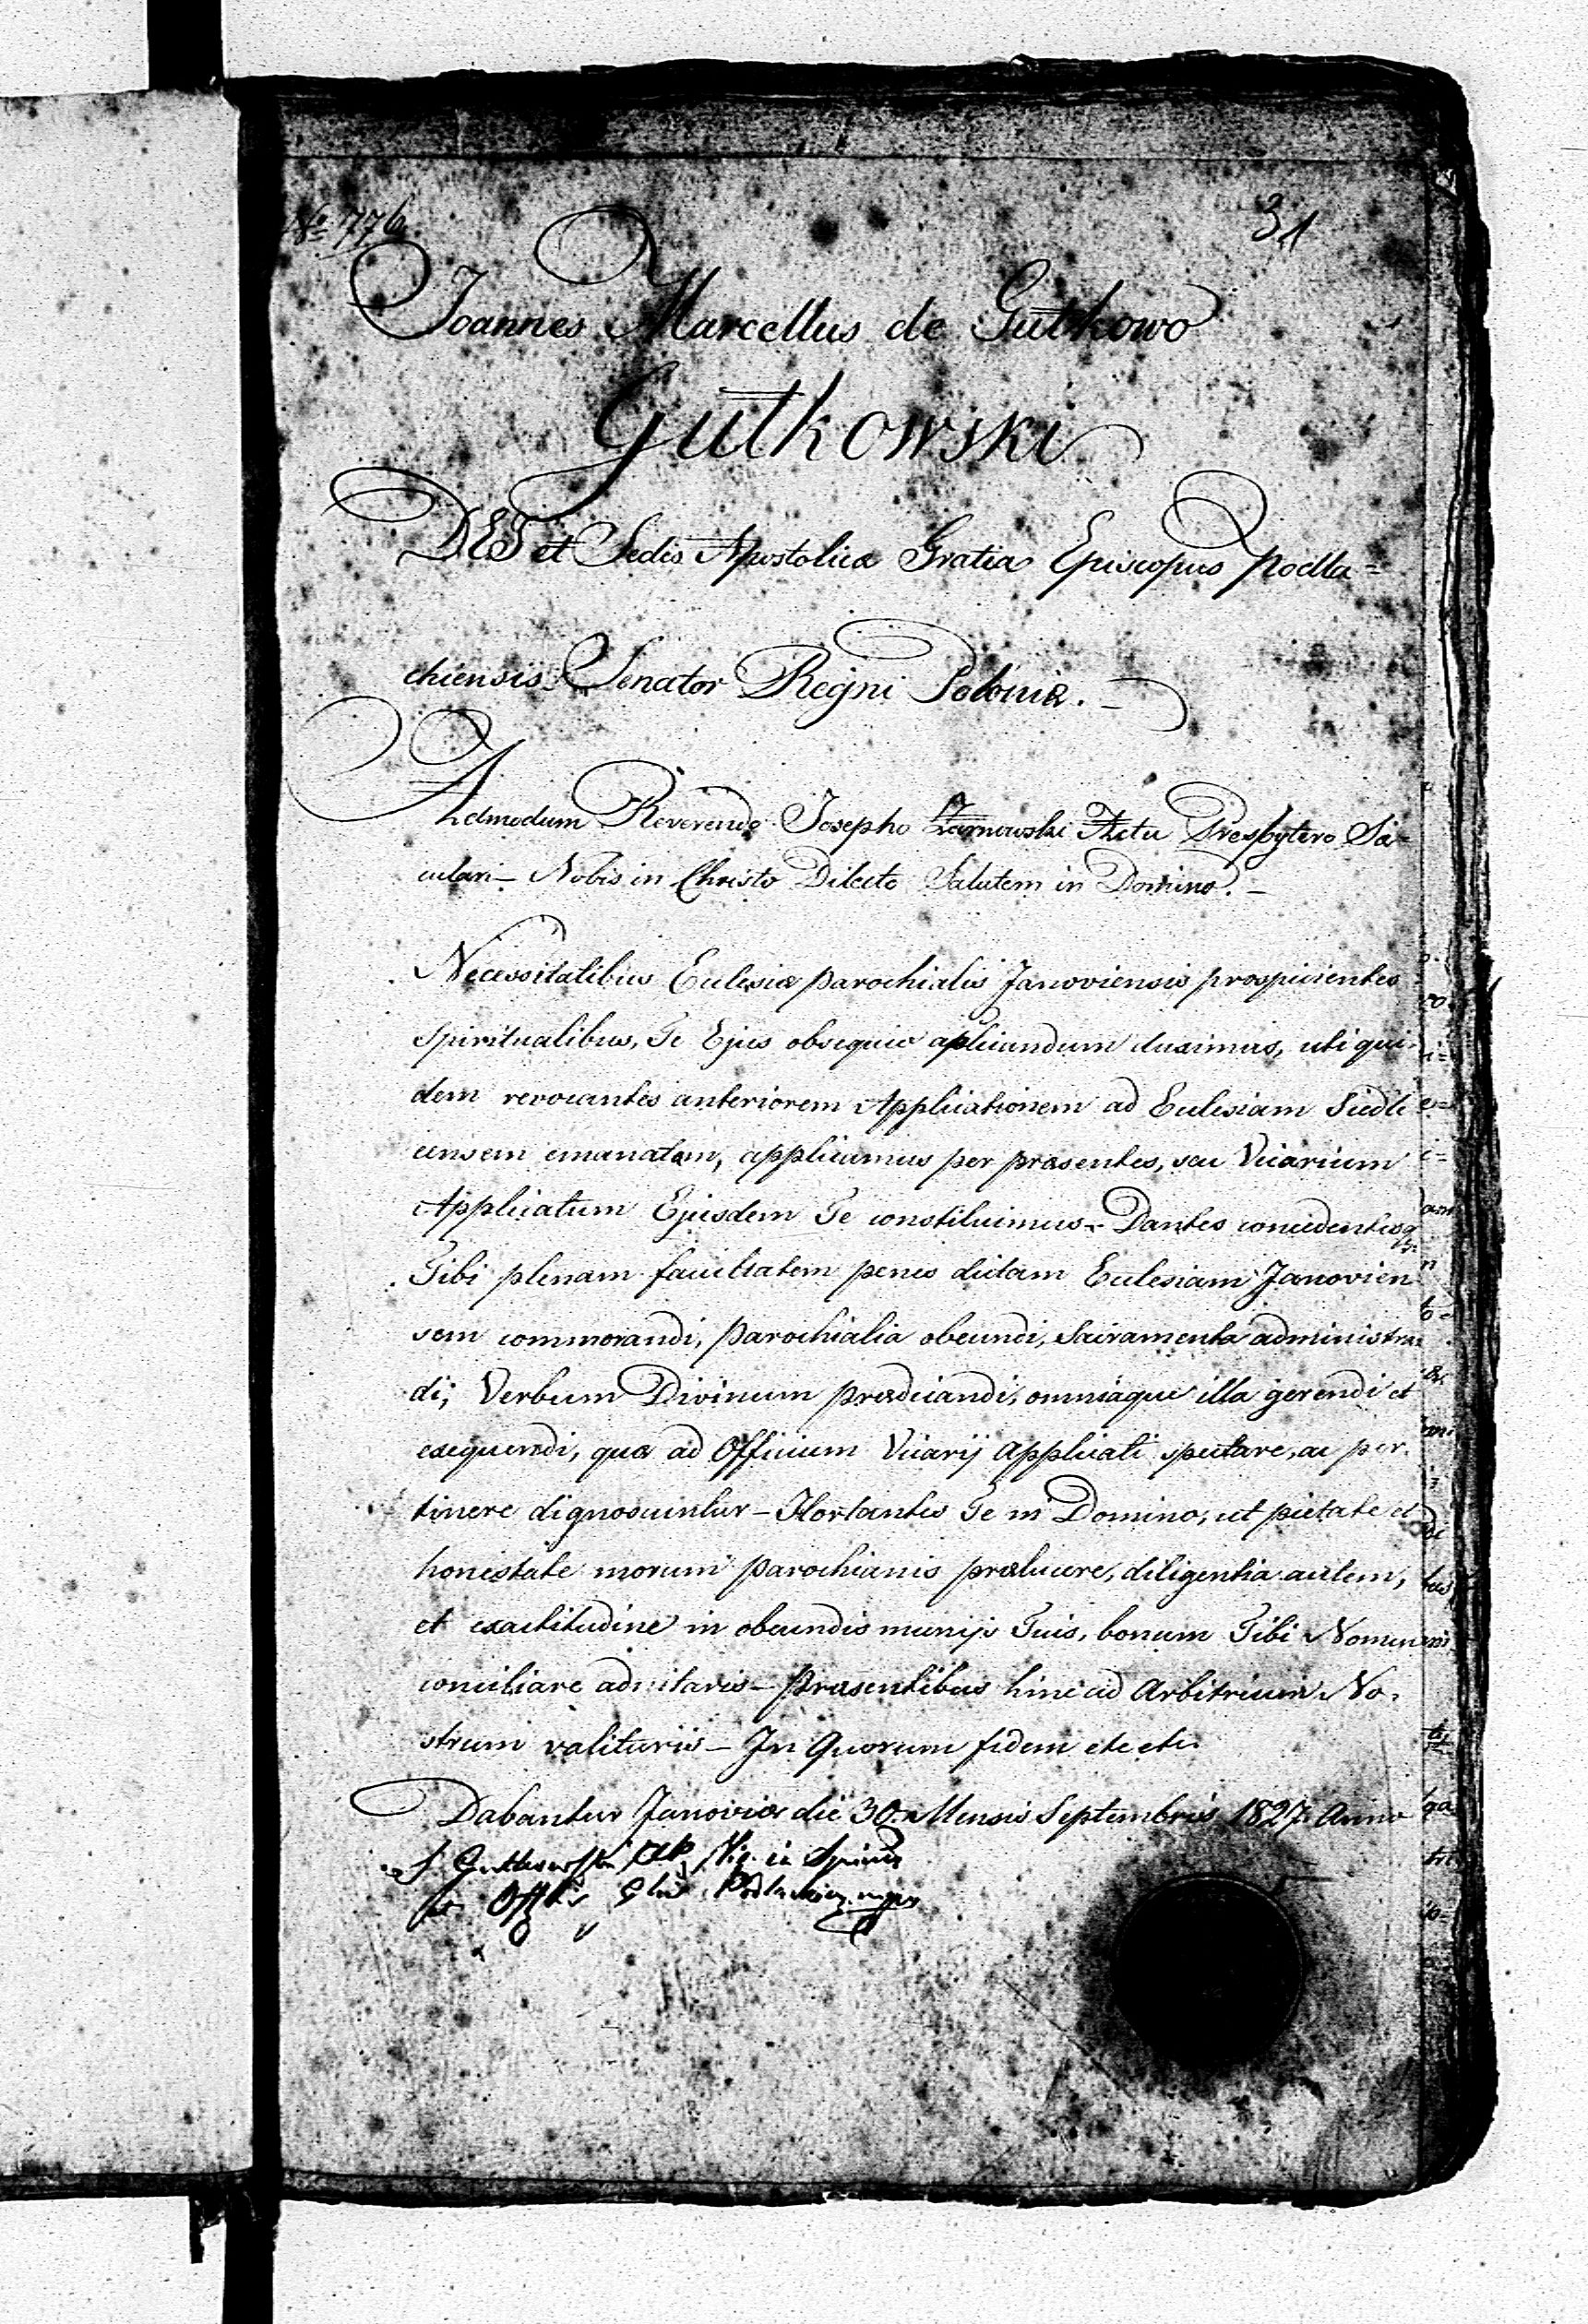 No 776.
31
Joannes Marcellus de Gutkowo
Gutkowski
DEI et Sedis Apostolicæ Gratia Episcopus Podla=
chiensis. Senator Regni Poloniæ. —
Admodum Reverendo Josepho Żarnowski Actu Presbytero Sæ=
culari — Nobis in Christo Dilecto Salutem in Domino. —
Necessitatibus Ecclesiæ parochialis Janoviensis prospicientes
spiritualibus, Te Ejus obsequio aplicandum duximus, uti qui=
dem revocantes anteriorem Applicationem ad Eclesiam Siedl
censem emanatam, applicamus per præsentes, seu Vicarium
Applicatum Ejusdem Te constituimus — Dantes concedentesq
Tibi plenam facultatem penes dictam Eclesiam Janovien
sem commorandi, parochialia obeundi, Sacramenta administran
di; Verbum Divinum prædicandi, omniaque illa gerendi et
exequendi, quæ ad Officium Vicarij applicati spectare, ac per=
tinere dignoscuntur — Hortantes Te in Domino, ut pietate et
honestate morum parochianis prælucere, diligentia autem,
et exactitudine in obeundis munijs Tuis, bonum Tibi Nomen
conciliare adnitaris — Præsentibus hinc ad Arbitrium No=
strum valituris — In Quorum fidem etc etc.
Dabantur Janoviæ die 30 Mensis Septembris 1827. Anno